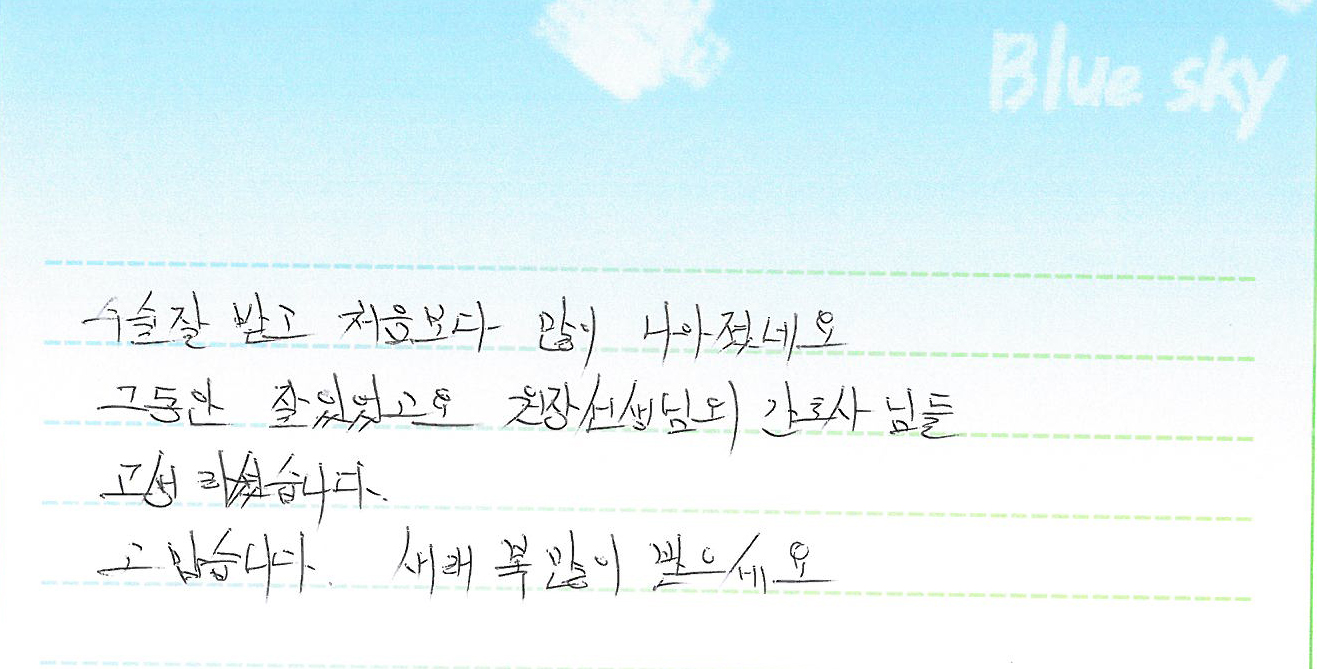 Blue sky
수술잘 받고 처음보다 많이 나아졌네요
그동안 잘있었고요 원장선생님외 간호사님들
고생 하셨습니다.
고맙습니다. 새해 복 많이 받으세요